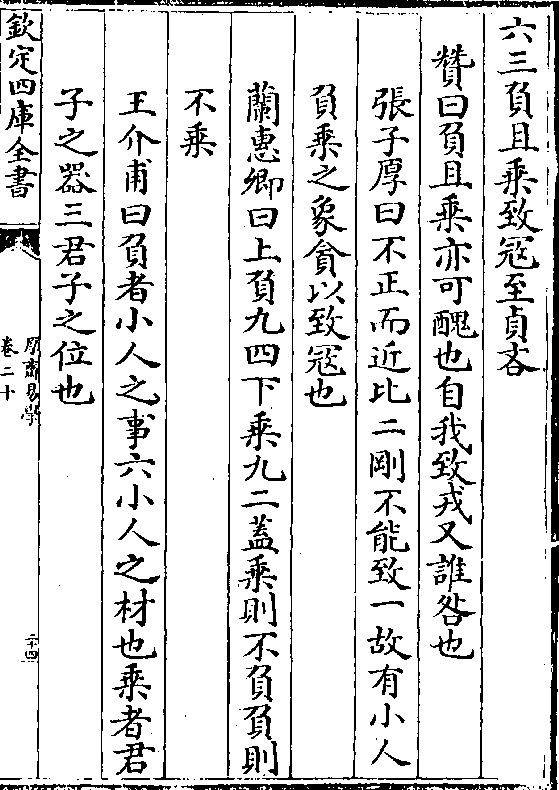 六三負且乘致冦至貞吝
贊曰負且乘亦可醜也自我致戎又誰咎也
張子厚曰不正而近比二剛不能致一故有小人
負乘之象貪以致冦也
蘭惠卿曰上負九四下乘九二蓋乘則不負負則
不乘
王介甫曰負者小人之事六小人之材也乘者君
子之器三君子之位也
欽定四庫全書
厚齋易學
卷二十
二十四